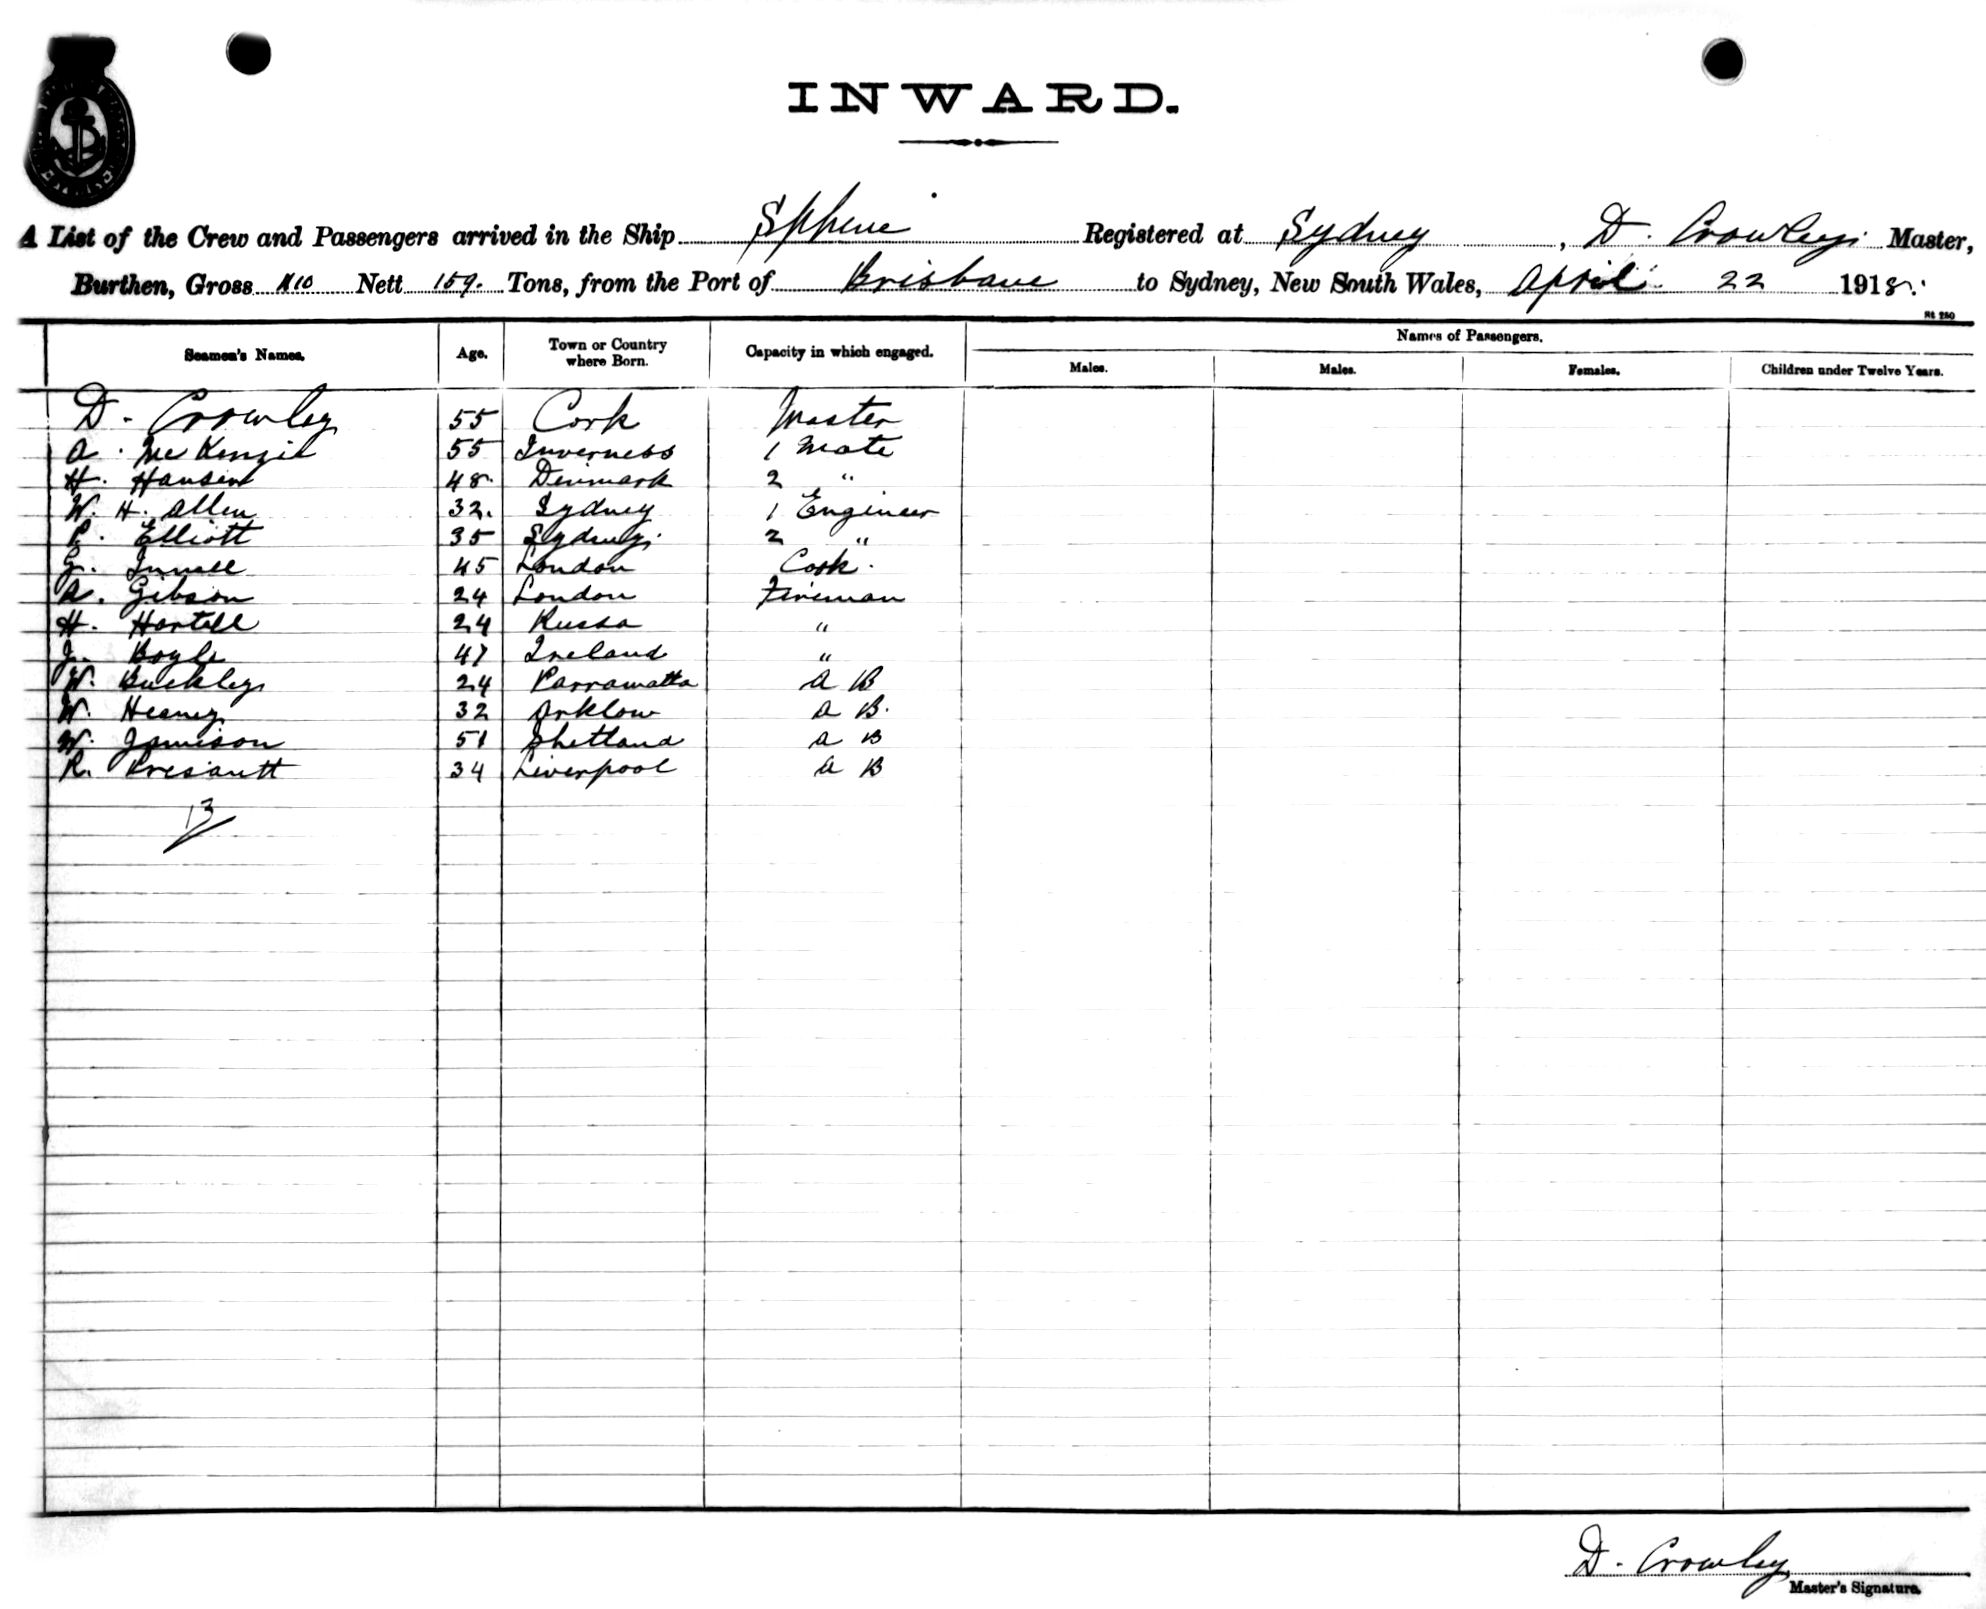 INWARD.
A List of the Crew and Passengers arrived in the Ship Sphene Registered at Sydney, D. Crowley. Master,
Burthen, Gross 410 Nett 159. Tons, from the Port of Brisbane to Sydney, New South Wales, April 22 1918.
St 280
Seamen's Names. Age. Town or Country where Born. Capacity in which engaged. Names of Passengers.
Males. Males. Females. Children under Twelve Years.
D. Crowley 55 Cork Master
A. McKenzie 55 Inverness 1 Mate
H. Hansen 48 Denmark 2 "
W. H. Allen 32. Sydney 1 Engineer
P. Elliott 35 Sydney. 2 "
G. 45 London Cook.
A. Gibson 24 London Fireman
H. Hartell 24 Russa "
J. Boyle 47 Ireland "
W. Buckley 24 Parramatta A B
W. Heaney 32 Arklow A B.
W. Jamison 51 Shetland A B
R. 34 Liverpool A B
13
D. Crowley
Master's Signature.